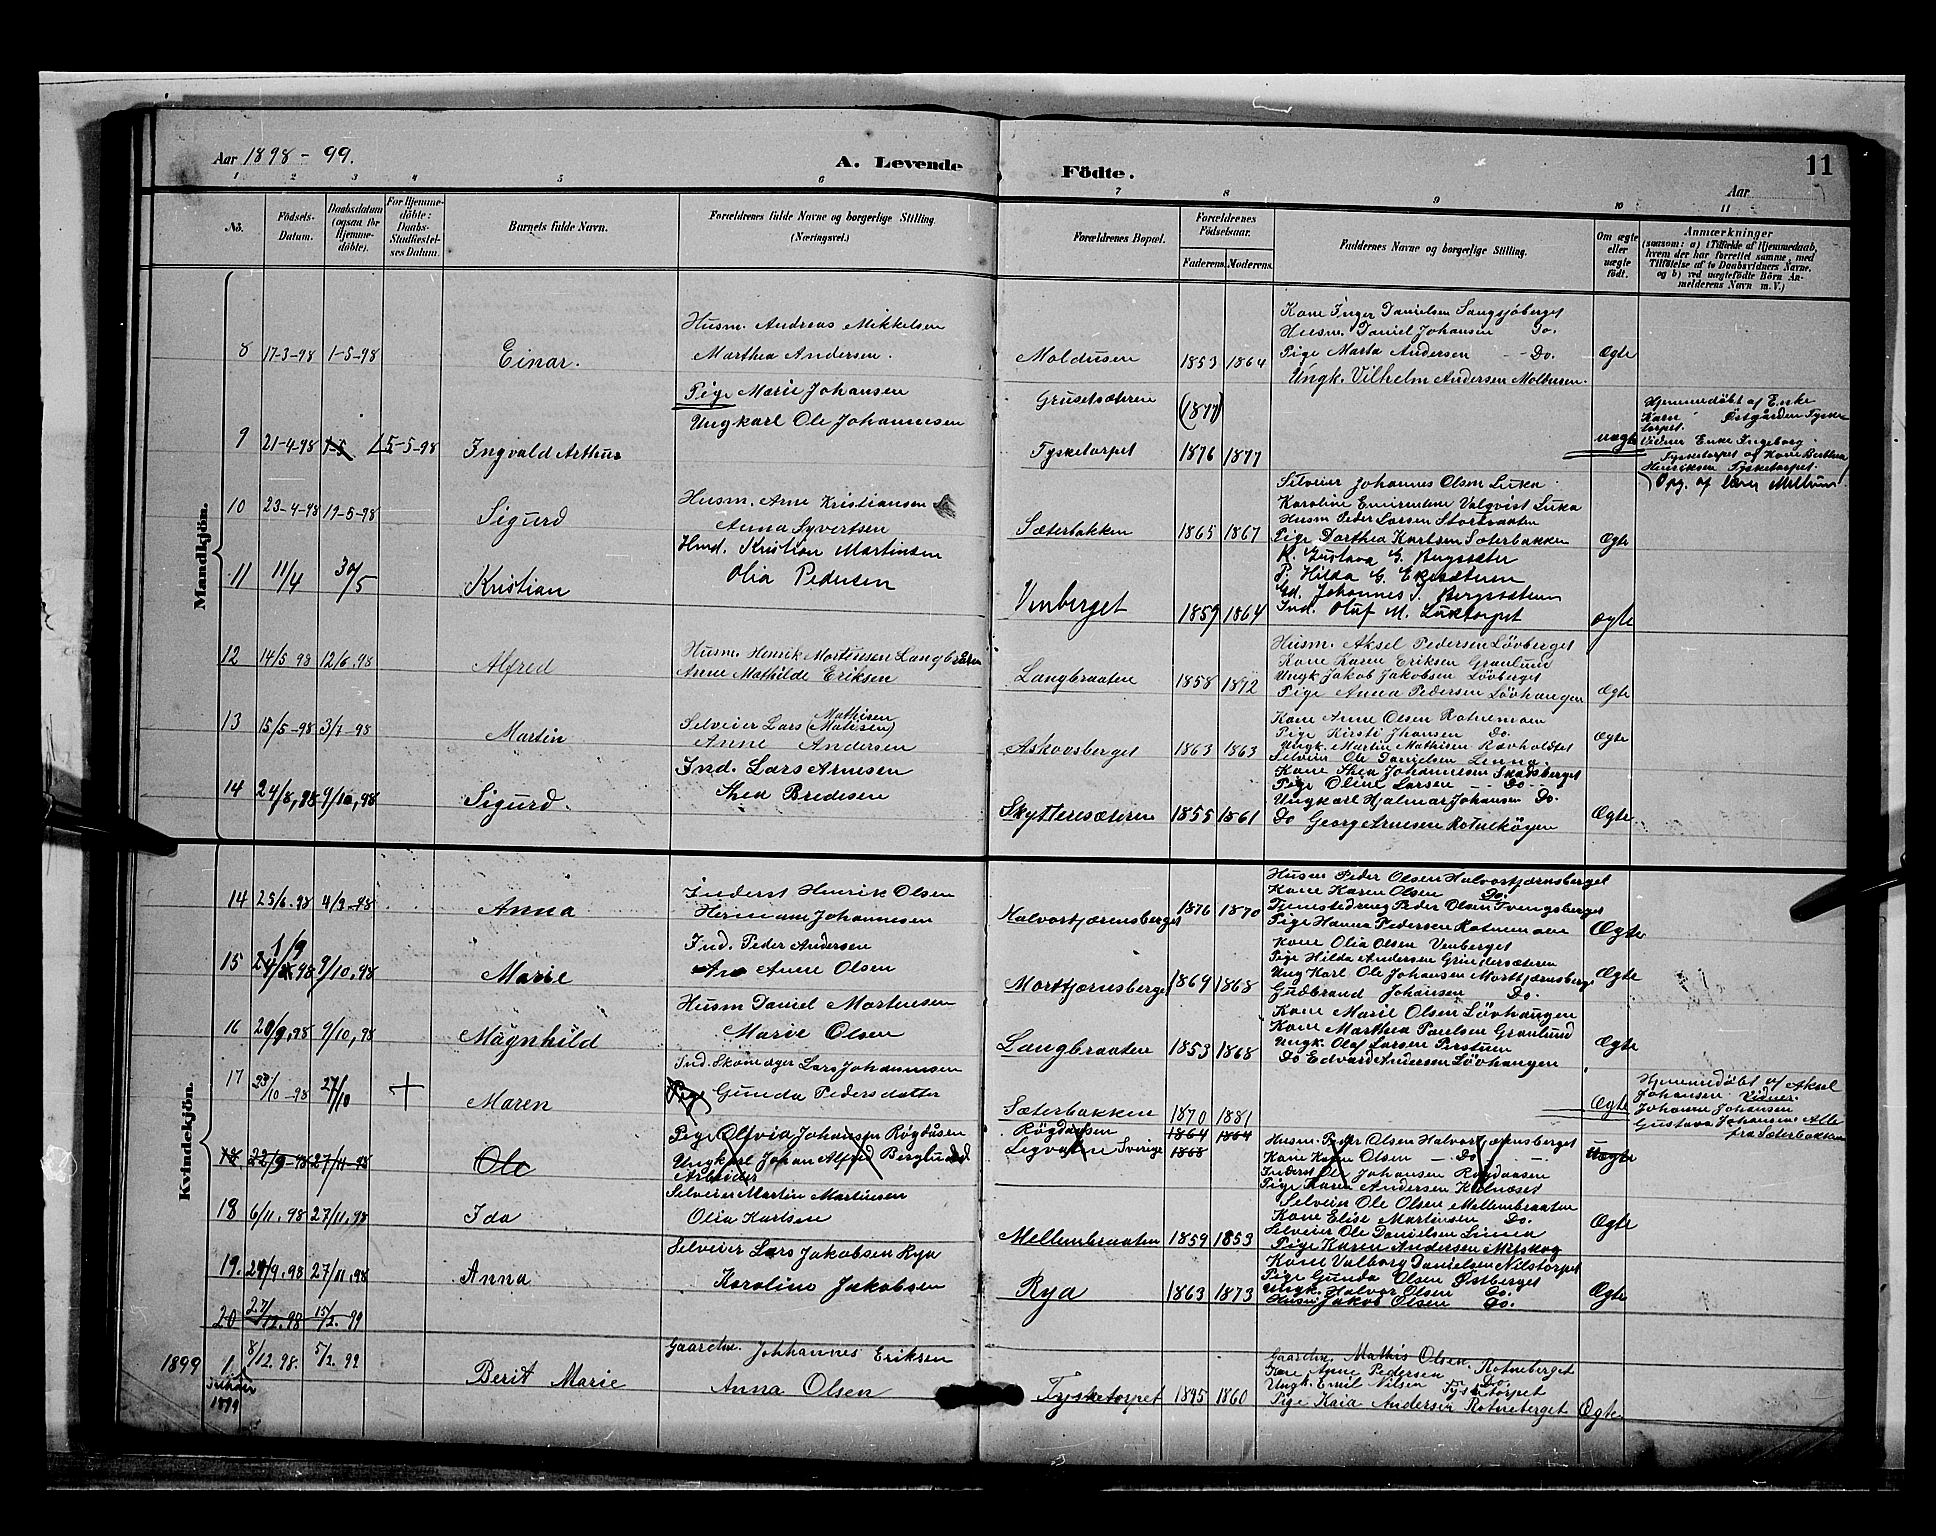 Aar 1898-99.
A. Levende Födte.
11
Aar
1 2 3 4 5 6 7 8 9 10 11
No.
Födsels-Datum.
Daabsdatum (ogsaa for Hjemme-döbte).
For Hjemme-döbte: Daabs-Stadfæstel-ses Datum.
Barnets fulde Navn.
Forældrenes fulde Navne og borgerlige Stilling. (Næringsvei.)
Forældrenes Bopæl.
Forældrenes Födselsaar.
Faderens. Moderens.
Faddernes Navne og borgerlige Stilling.
Om ægte eller uægte födt.
Anmærkninger
(saasom: a) i Tilfælde af Hjemmedaab, hvem der har forrettet samme, med Tilföielse af to Daabsvidners Navne, og b) ved uægtefödte Börn An-melderens Navn m. V.)
Mandkjön.
8 17-3-98 1-5-98 Einar.
Husm. Andreas Mikkelsen
Marthea Andersen.
Moldusen 1853 1864
Kone Inger Danielsen Langsjöberget
Husm. Daniel Johansen Do.
Pige Marta Andersen - Do.
Ungk. Vilhelm Andersen Moldusen.
Ægte
9 21-4-98 1-5 15-5-98 Ingvald Arthur
Pige Marie Johansen
Ungkarl Ole Johannesen
Grusetsæteren (1877)
Tysketorpet 1876 1877
uægte
Hjemmedöbt af Enke
Karn Östgården Tyske
torpet.
Vidner Enke Ingeborg
Tysketorpet og Kone Berthea
Henriksen Tysketorpet.
Opg. af
10 23-4-98 19-5-98 Sigurd
Husm. Arne Kristiansen
Anna Syvertsen
Sæterbakken 1865 1867
Selveier Johannes Olsen Luka
Karoline Emerentine Valqvist Luka
Husm Peder Larsen Storbraaten
Pige Dorthea Karlsen Sæterbakken
Ægte
11 11/4 30/5 Kristian
Hmd. Kristian Martinsen
Olia Pedersen
Vinberget 1859 1864
K. Gustava G. Bergsæter
P. Hilda G. Ekesæteren
Gd. Johannes J. Bergsæteren
Ind. Oluf M. Luktorpet
Ægte
12 14/5 98 12/6.98 Alfred
Husm. Henrik Mortensen Langbraaten
Anne Mathilde Eriksen
Langbraaten 1858 1872
Husm. Aksel Pedersen Lövberget
Kone Karen Eriksen Granlund
Ungk Jakob Jakobsen Lövberget
Pige Anna Pedersen Lövhaugen
Ægte
13 15/5-98 3/7-98 Martin
Mathisen
Selveier Lars (Matisen)
Anne Andersen
Askovsberget 1863 1863
Kone Anne Olsen Rotnemoen
Pige Kirsti Jhansen Do.
Ungk. Martin Mathisen Rævholtet
Selveier Ole Danielsen Linna.
Ægte
14 24/8,98 9/10,98 Sigurd.
Ind. Lars Arnesen
Thea Bredesen
Skytteresæteren 1855 1861
Kone Thea Johannesen Skasberget
Pige Oline Larsen - Do -
Ungkarl Hjalmar Johansen Do.
Do Georg Arnesen Rotnehögen
Ægte
Kvindekjön.
14 25/6.98 4/9-98 Anna
Inderst Henrik Olsen
Hermane Johannesen
Halvortjærnsberget 1876 1870
Husm Peder Olsen Halvortjærnsberget
Kone Karen Olsen Do.
Tjenestedreng Peder Olsen Tvengsberget
Pige Hanna Pedersen Rotnemoen
Ægte
15 1/9 98 9/10,98 Marie
Ind. Peder Andersen
Anne Olsen
Morttjærnsberget 1869 1868
Kone Olia Olsen Venberget
Pige Hilda Andersen Grindersæteren
Ung Karl Ole Johansen Morttjærnsberg
Gudbrand Johansen Do.
Ægte
16 20/9,98 9/10,98 Magnhild
Husm Daniel Martinesen
Marie Olsen
Langbraaten 1853 1868
Kone Marie Olsen Lövhaugen
Kone Marthea Paulsen Granlund
Ungk. Olaf Larsen Perstuen
Do Edvard Andersen Lövhaugen
Ægte
17 23/10-98 27/10 + Maren
Ind. Skomager Lars Johannesen
Pige Gunda Pedersdatter
Sæterbakken 1870 1881
Ægte
Hjemmedöbt af Aksel
Johansen. Vidner
Johanne Johansen
Gustava Johansen Alle
fra Sæterbakken
18 22/9-98 27/11-98 Ole
Pige Olivia Johansen Rögdåsen
Ungkarl Johan Alfred Berglund
Arbeider
Rögdåsen 1864 1864
Sverige 1868
Husm. Peder Olsen Halvortjærnsberget
Kone Karen Olsen - Do -
Inderst Ole Johansen Rögdaasen
Pige Karen Andersen Kalneset
Uægte
18 6/11,98 27/11,98 Ida
Selveier Martin Martinsen
Olia Karlsen
Mellembraaten 1859 1853
Selveier Ole Olsen Mellembraaten
Kone Elise Martinsen Do.
Selveier Ole Danielsen Linna
Pige Karen Andersen Mitskog
Ægte
19. 29/9.98 27/11.98 Anna
Selveier Lars Jakobsen Rya
Karoline Jakobsen
Rya 1863 1873
Kone Valborg Danielsen Nilstorpet
Pige Gunda Olsen Östberget
Ungk. Halvor Olsen Do.
Husm Jakob Olsen Do.
Ægte
20 27/12.98 15/2.99
1899 1. 8/12.98. 5/2 99 Berit Marie
1899
Gaardm. Johhannes Eriksen
Anna Olsen
Tysketorpet 1895 1860
Gaardm. Mathis Olsen
Kone Anne Pedersen Rotneberget
Ungk. Emil Nilsen Do. Tysketorpet
Pige Kaia Andersen Rotneberget
Ægte